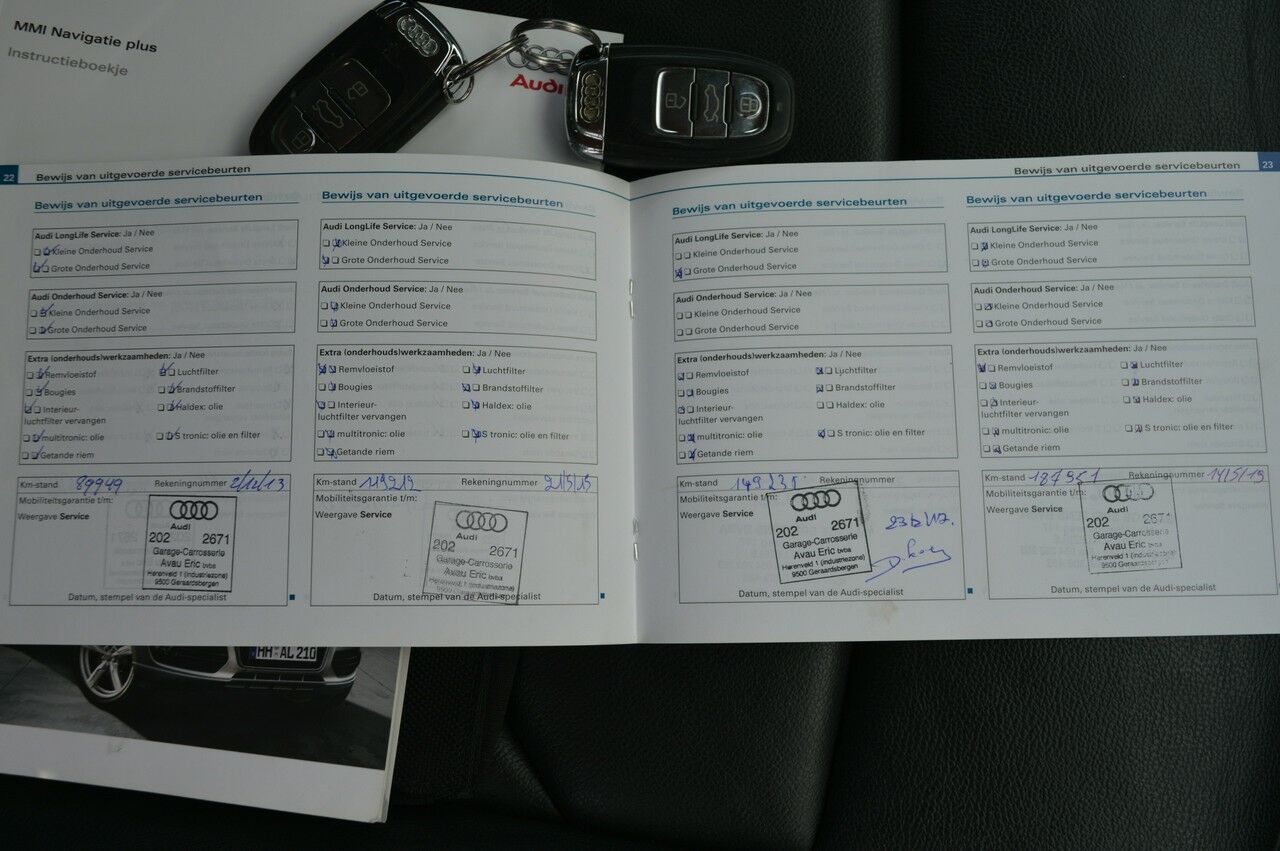 MMI Navigatie plus
Instructieboekje
Audi
22
Bewijs van uitgevoerde servicebeurten
Bewijs van uitgevoerde servicebeurten
Audi LongLife Service: Ja / Nee
Kleine Onderhoud Service
Grote Onderhoud Service
Audi Onderhoud Service: Ja / Nee
Kleine Onderhoud Service
Grote Onderhoud Service
Extra (onderhouds)werkzaamheden: Ja / Nee
Remvloeistof Luchtfilter
Bougies Brandstoffilter
Interieur- Haldex: olie
luchtfilter vervangen
multitronic: olie S tronic: olie en filter
Getande riem
Km-stand 89949 Rekeningnummer 2/12/13
Mobiliteitsgarantie t/m:
Weergave Service
Audi
202 2671
Garage-Carrosserie
Avau Eric bvba
Herenveld 1 (industriezone)
9500 Geraardsbergen
Bewijs van uitgevoerde servicebeurten
Audi LongLife Service: Ja / Nee
Kleine Onderhoud Service
Grote Onderhoud Service
Audi Onderhoud Service: Ja / Nee
Kleine Onderhoud Service
Grote Onderhoud Service
Extra (onderhouds)werkzaamheden: Ja / Nee
Remvloeistof Luchtfilter
Bougies Brandstoffilter
Interieur- Haldex: olie
luchtfilter vervangen
multitronic: olie S tronic: olie en filter
Getande riem
Km-stand 119212 Rekeningnummer 21/5/15
Mobiliteitsgarantie t/m:
Weergave Service
Audi
202 2671
Garage-Carrosserie
Avau Eric bvba
Herenveld 1 (industriezone)
9500 Geraardsbergen
Datum, stempel van de Audi-specialist
Datum, stempel van de Audi-specialist
Bewijs van uitgevoerde servicebeurten
23
Bewijs van uitgevoerde servicebeurten
Audi LongLife Service: Ja / Nee
Kleine Onderhoud Service
Grote Onderhoud Service
Audi Onderhoud Service: Ja / Nee
Kleine Onderhoud Service
Grote Onderhoud Service
Extra (onderhouds)werkzaamheden: Ja / Nee
Remvloeistof Luchtfilter
Bougies Brandstoffilter
Interieur- Haldex: olie
luchtfilter vervangen
multitronic: olie S tronic: olie en filter
Getande riem
Km-stand 149235 Rekeningnummer
Mobiliteitsgarantie t/m:
Weergave Service
Audi
202 2671
Garage-Carrosserie
Avau Eric bvba
Herenveld 1 (industriezone)
9500 Geraardsbergen
Datum, stempel van de Audi-specialist
Bewijs van uitgevoerde servicebeurten
Audi LongLife Service: Ja / Nee
Kleine Onderhoud Service
Grote Onderhoud Service
Audi Onderhoud Service: Ja / Nee
Kleine Onderhoud Service
Grote Onderhoud Service
Extra (onderhouds)werkzaamheden: Ja / Nee
Remvloeistof Luchtfilter
Bougies Brandstoffilter
Interieur- Haldex: olie
luchtfilter vervangen
multitronic: olie S tronic: olie en filter
Getande riem
Km-stand 187951 Rekeningnummer 14/5/19
Mobiliteitsgarantie t/m:
Weergave Service
Audi
202 2671
Garage-Carrosserie
Avau Eric bvba
Herenveld 1 (industriezone)
9500 Geraardsbergen
Datum, stempel van de Audi-specialist
HH AL 210